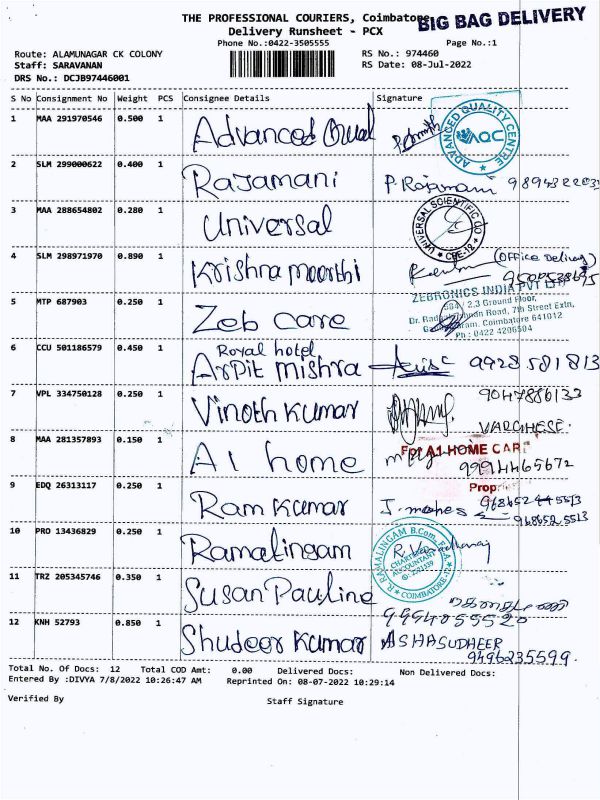 THE PROFESSIONAL COURIERS, Coimbatore
BIG BAG DELIVERY
Delivery Runsheet - PCX
Phone No.:0422-3505555
Page No.:1
Route: ALAMUNAGAR CK COLONY
RS No.: 974460
Staff: SARAVANAN
RS Date: 08-Jul-2022
DRS No.: DCJB97446001
S No Consignment No Weight PCS Consignee Details Signature
1 MAA 291970546 0.500 1 Advanced
ADVANCED QUALITY CENTRE
AQC
2 SLM 299000622 0.400 1 Rajamani P. Rajamani
3 MAA 288654802 0.280 1 Universal
UNIVERSAL SCIENTIFIC CO
CBE-12
4 SLM 298971970 0.890 1 Krishna moorthi (Office Delivery)
ZEBRONICS INDIA PVT LTD
5 MTP 687903 0.250 1 Zeb Care
584 / 2,3 Ground Floor,
Road, 7th Street Extn,
Coimbatore 641012
Ph : 0422 4206504
6 CCU 501186579 0.450 1 Royal hotel
Arpit mishra 9928581813
7 VPL 334750128 0.250 1 Vinoth Kumar 9047886133
VARGHESE.
8 MAA 281357893 0.150 1 A1 home
For A1 HOME CARE
9994465672
Prop.
9 EDQ 26313117 0.250 1 Ram Kumar
9686525513
10 PRO 13436829 0.250 1 Ramalingam
R. RAMALINGAM B.Com, FCA
CHARTERED ACCOUNTANT
COIMBATORE-12
11 TRZ 205345746 0.350 1 Susan Pauline
9994055520
12 KNH 52793 0.850 1 Shudeer Kumar ASHASUDHEER
9496235599
Total No. Of Docs: 12 Total COD Amt: 0.00 Delivered Docs: Non Delivered Docs:
Entered By :DIVYA 7/8/2022 10:26:47 AM Reprinted On: 08-07-2022 10:29:14
Verified By
Staff Signature